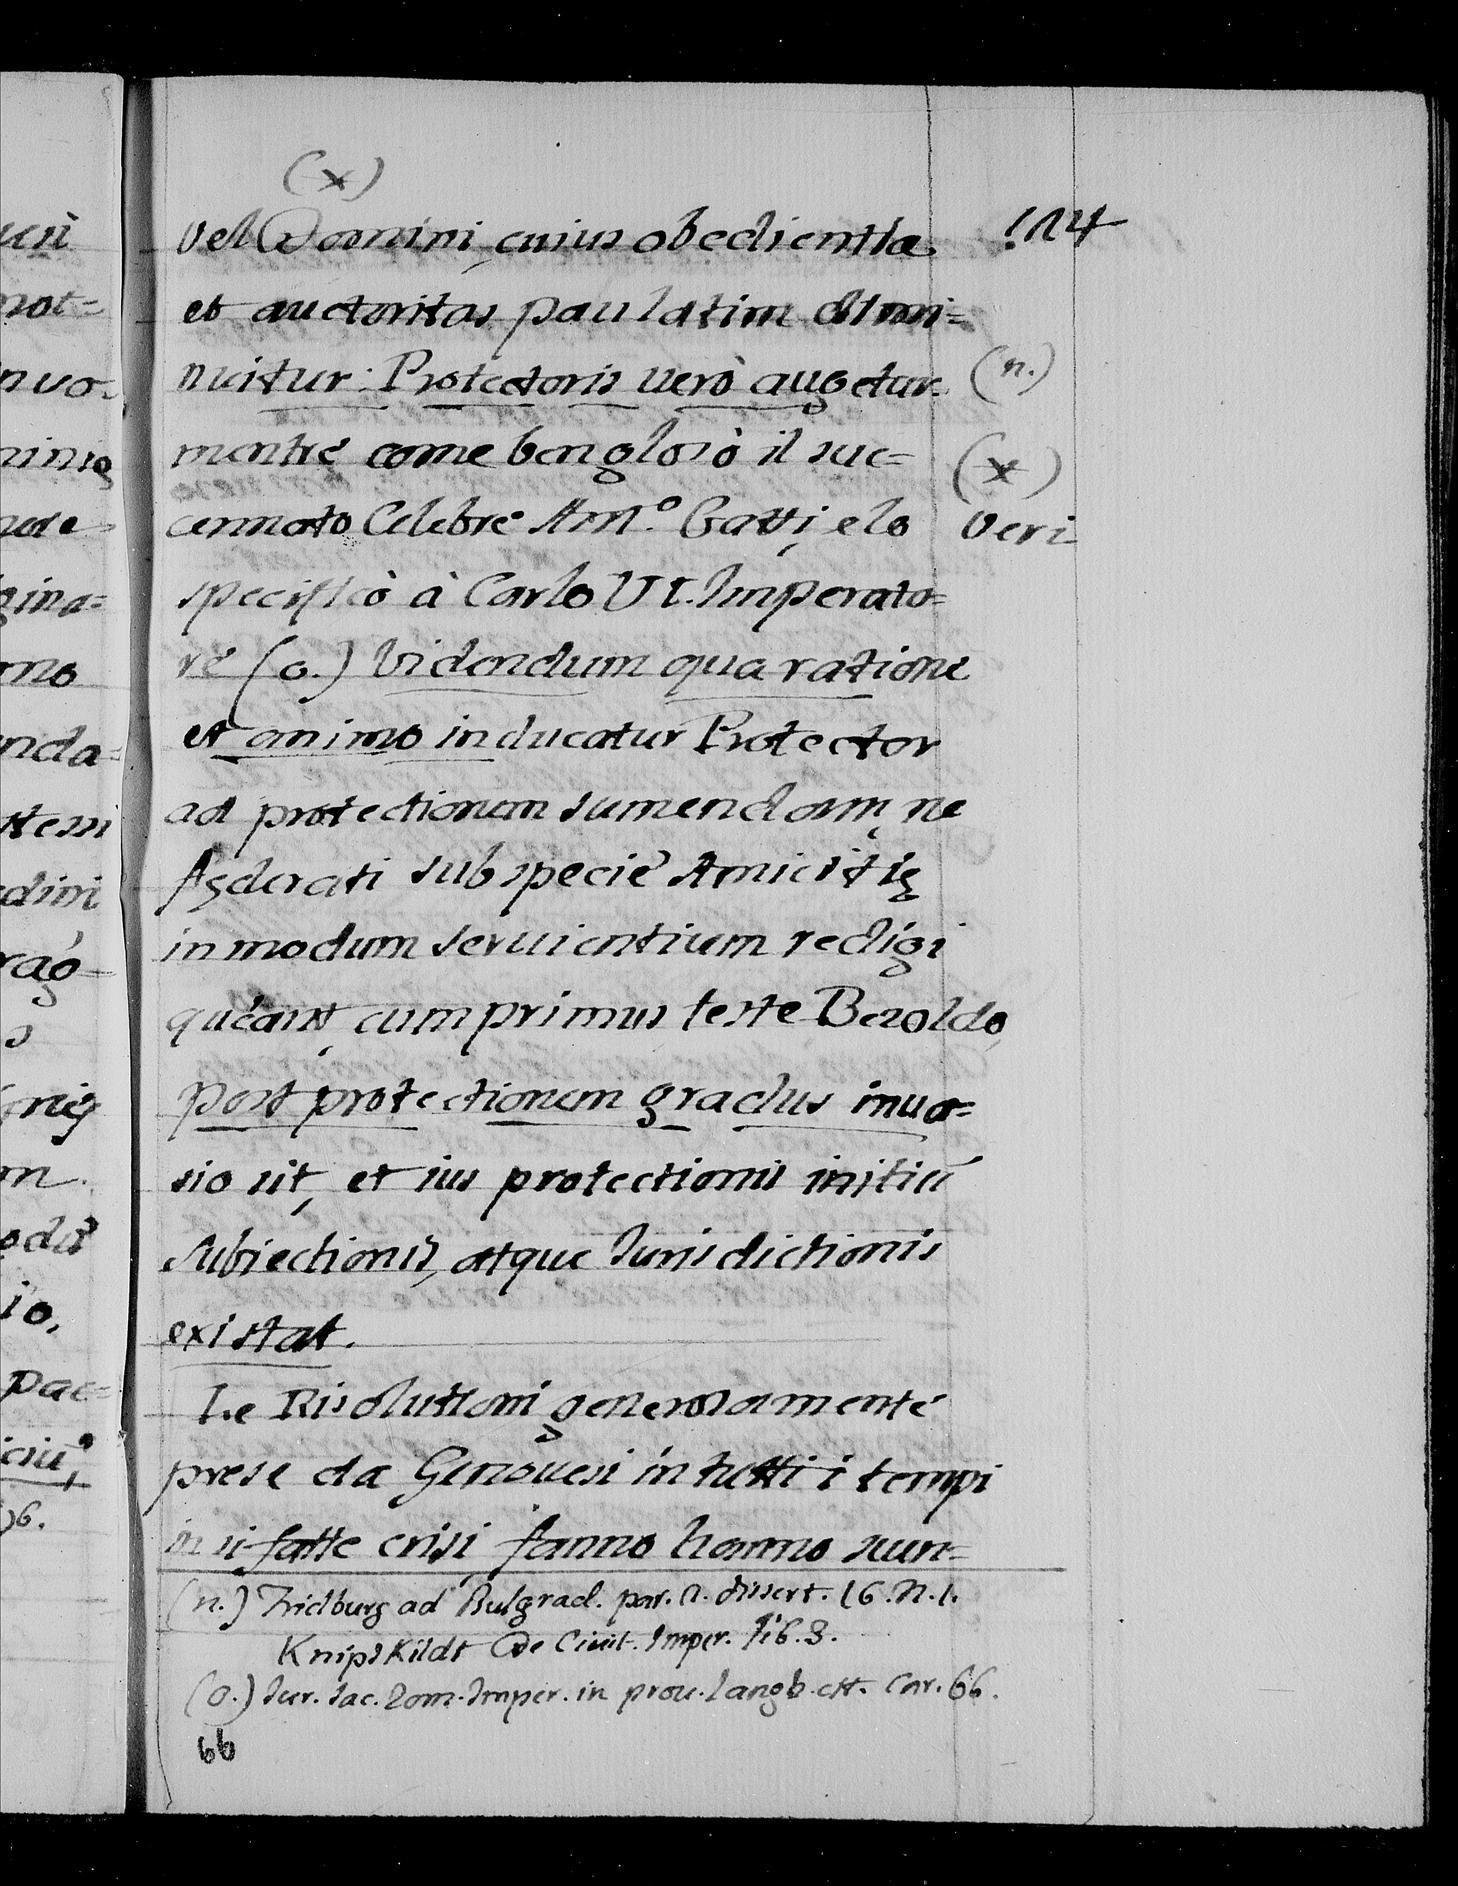 (x)
vel Domini, cuius obedientia
et auctoritas paulatim dimi=
nuitur: Protectoris verò augetur. (n.)
mentre come ben glosò il suc= (x)
cennato Celebre Ant.º Gatti, e lo veri
specificò à Carlo VI. Imperato=
re (o.) Videndum qua ratione
et animo inducatur Protector
ad protectionem sumendam, ne
Fęderati sub specie Amicitię
in modum servientium redigi
queant, cum primus teste Bezoldo,
post protectionem gradus inva=
sio sit, et ius protectionis initiũ
subiectionis, atque Iurisdictionis
existat.
Le Risolutioni generosamente
prese da Genovesi in tutti i tempi
in si fatte crisi, fanno hanno sun=
(n.) Fridburg ad Bulgrad. par. 2. dissert. 16. n. 1.
Knipskildt De Civit. Imper. lib. 3.
(o.) Iur. sac. Rom. Imper. in prov. Langb. ett. Car. 66.
66